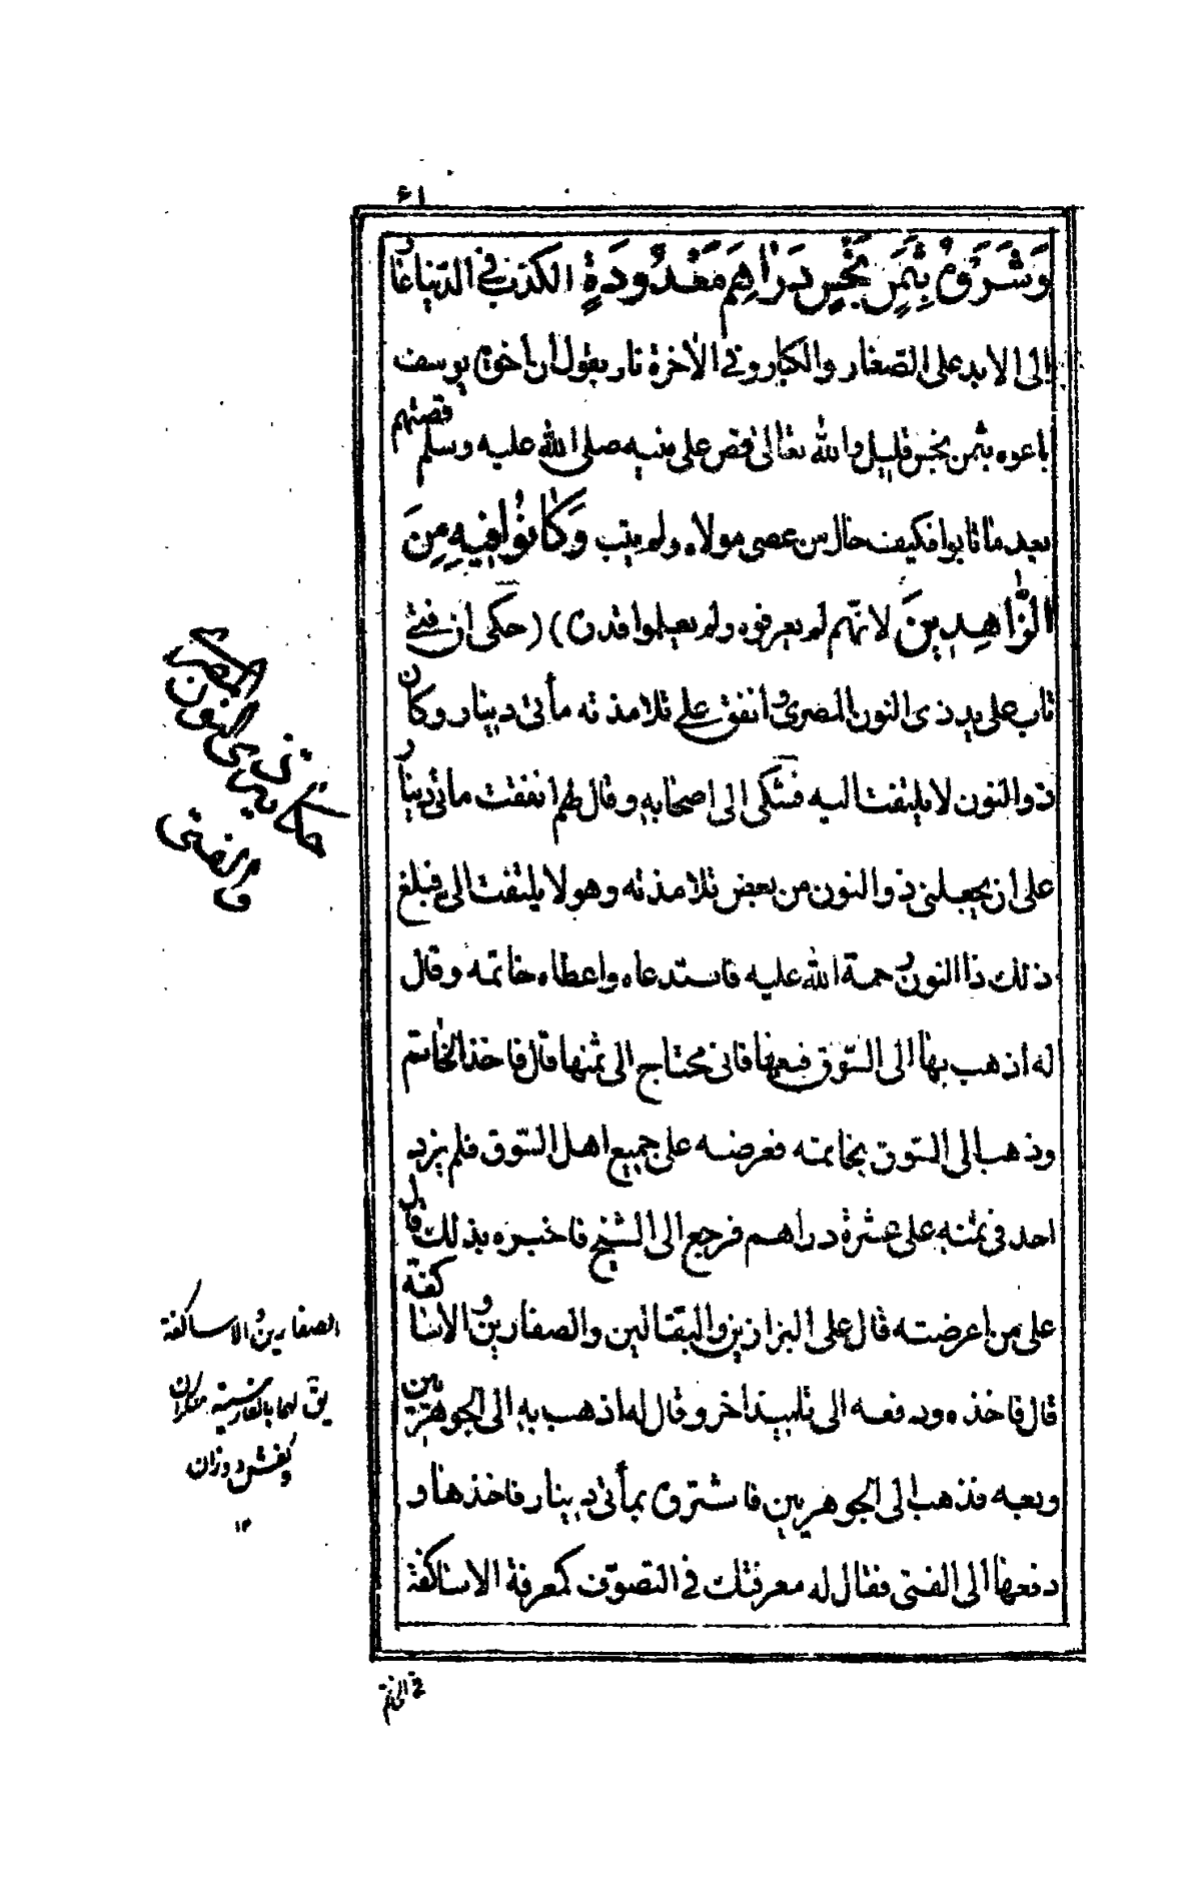 ٦١
وَشَرَوْهُ بِثَمَنٍ بَخْسٍ دَرَاهِمَ مَعْدُودَةٍ الكذب فى الدنيا عار
الى الابد على الصغار والكبار وفى الاخرة نار يقول ان اخوة يوسف
باعوه بثمن بخس قليل والله تعالى قص على نبيه صلى الله عليه وسلم قصتهم
بعد ما تابوا فكيف حال من عصى مولاه ولم يتب وَكَانُوا فِيهِ مِنَ
الزَّاهِدِينَ لانهم لم يعرفوه ولم يعلموا قدره) (حكى ان فتى
تاب على يد ذى النون المصرى وانفق على تلامذته مأتى دينار وكان
ذو النون لا يلتفت اليه فشكى الى اصحابه وقال لهم انفقت مأتى دينار
على ان يجعلنى ذو النون من بعض تلامذته وهو لا يلتفت الى فبلغ
ذلك ذا النون رحمة الله عليه فاستدعاه واعطاه خاتمه وقال
له اذهب بها الى السوق فبعها فانى محتاج الى ثمنها قال فاخذ الخاتم
وذهب الى السوق بخاتمه فعرضه على جميع اهل السوق فلم يزد
احد فى ثمنه على عشرة دراهم فرجع الى الشيخ فاخبره بذلك قال
على من اعرضته قال على البزازين والبقالين والصفارين والاساكفة
قال فاخذه ودفعه الى تلميذ اخر وقال له اذهب به الى الجوهريين
وبعه فذهب الى الجوهريين فاشترى بمأتى دينار فاخذها و
دفعها الى الفتى فقال له معرفتك فى التصوف كمعرفة الاساكفة
حكاية ذى النون المصرى
والفتى
الصفارين والاساكفة
يق لهما بالفارسية مسكران
وكفش دوزان
١٢
فى الخاتم